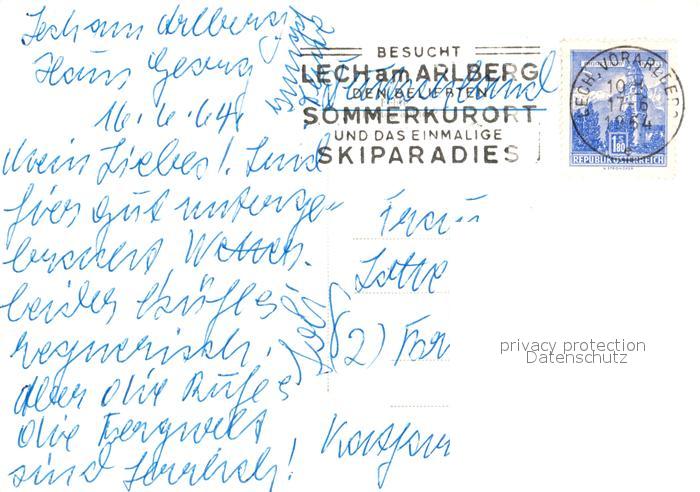 Lech am Arlberg
Haus Georg
16.6.64
Mein Liebes! Sind
hier gut unterge-
bracht, Wetter
leider kühl
regnerisch.
Aber die Ruhe
die Bergwelt
sind herrlich!
BESUCHT
LECH am ARLBERG
DEN BELIEBTEN
SOMMERKURORT
UND DAS EINMALIGE
SKIPARADIES
LECH, VORARLBERG
17-6
1964
1.80
REPUBLIK ÖSTERREICH
Frau
Lotte
2)
privacy protection
Datenschutz